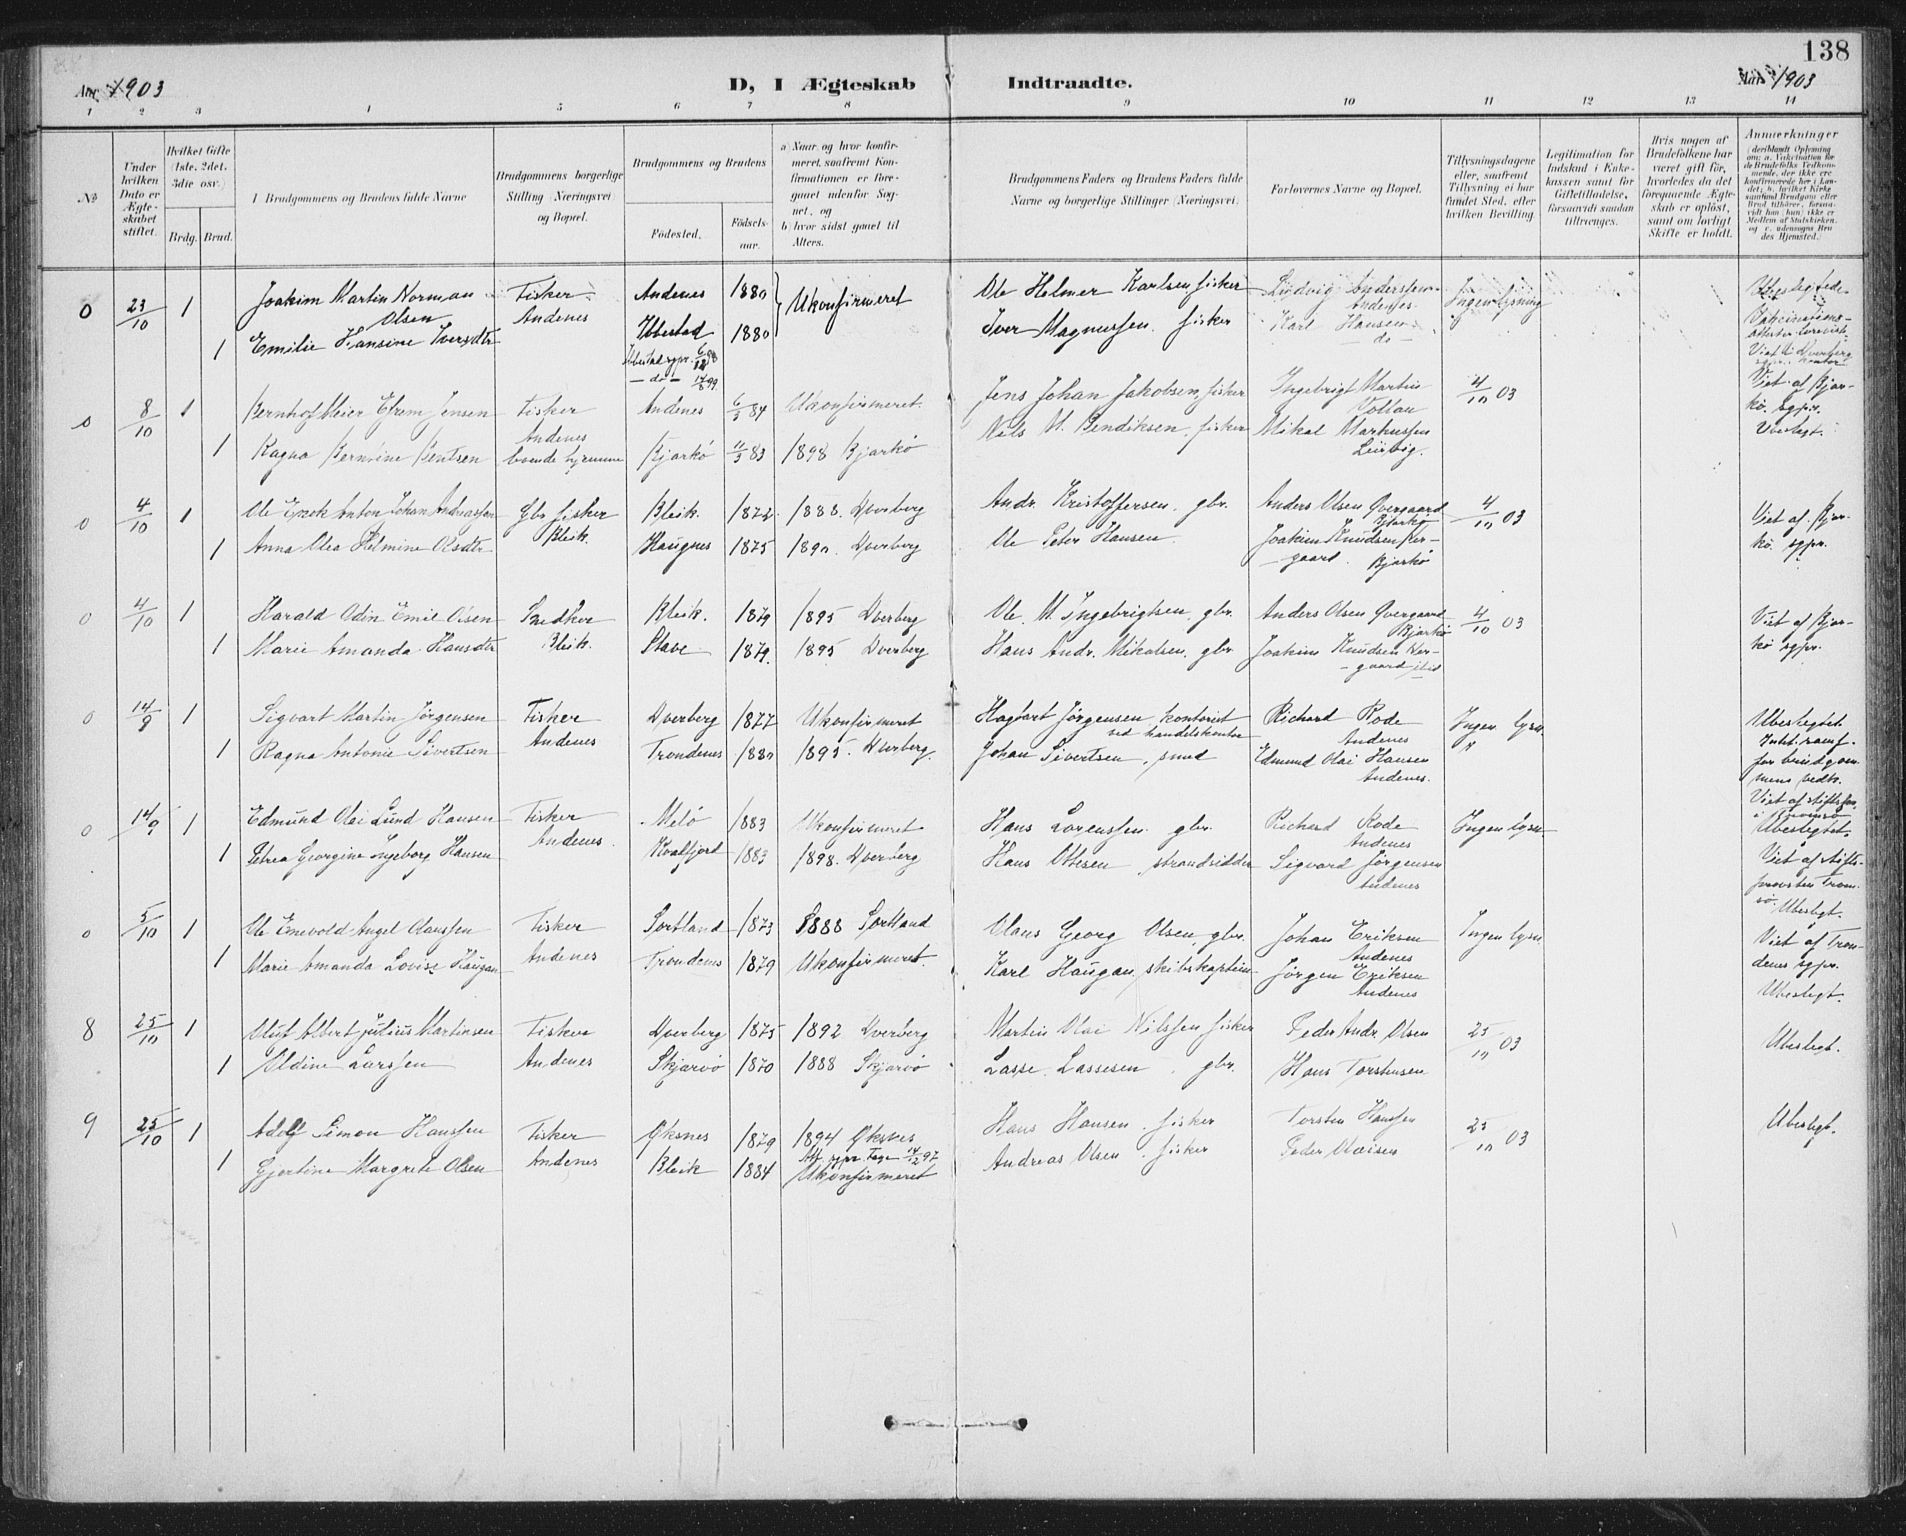 138
Aar 1903
D, I Ægteskab Indtraadte.
Aar 1903
1 2 3 4 5 6 7 8 9 10 11 12 13 14
No
Under hvilken Dato er Ægteskabet stiftet.
Hvilket Gifte (1ste, 2det, 3die osv.)
Brdg. Brud.
Brudgommens og Brudens fulde Navne
Brudgommens borgerlige Stilling (Næringsvei) og Bopæl.
Brudgommens og Brudens
Fødested.
Fødselsaar.
a) Naar og hvor konfirmeret, saafremt Konfirmationen er foregaaet udenfor Sognet, og
b) hvor sidst gaaet til Alters.
Brudgommens Faders og Brudens Faders fulde Navne og borgerlige Stillinger (Næringsvei).
Forlovernes Navne og Bopæl.
Tillysningsdagene eller, saafremt Tillysning ei har fundet Sted, efter hvilken Bevilling.
Legitimation for Indskud i Enkekassen samt for Giftetilladelse, forsaavidt saadan tiltrænges.
Hvis nogen af Brudefolkene har været gift før, hvorledes da det foregaaende Ægteskab er opløst, samt om lovligt Skifte er holdt.
Anmerkninger
0 23/10 1 Joakim Martin Norman Olsen Fisker Andenes Andenes 1880 Ukonfirmeret Ole Helmer Karlsen fisker Ludvig Andersen Andenes Ingen lysning
1 Emilie Hansine Iversdtr Ibbestad 1880 Iver Magnussen fisker Karl Hansen do
Ibbestad sgpr. 6/12 98
- do - 14/8 99
0 8/10 1 Bernhof Meier Efrem Jensen Fisker Andenes 6/3 84 Ukonfirmeret. Jens Johan Jakobsen, fisker Ingebrigt Martin Vollan 4/10 03 Viet af Bjarkö. sgpr. Ubeslegt.
1 Ragna Bernöine Bentsen Andenes boende hjemme Bjarkö 11/3 83 1898 Bjarkö Nils M. Bendiksen, fisker Mikal Markussen Leirvig.
0 4/10 1 Ole Enok Anton Johan Andreassen Gbr fisker Bleik. Bleik. 1872. 1888. Dverberg Andr. Kristoffersen, gbr. Anders Olsen Øvergaard Bjarkö 4/10 03 Viet af Bjarkö. sgpr.
1 Anna Olea Helmine Olsdtr Haugnes 1875 1890. Dverberg Ole Peter Hansen. Joakim Knudsen gaard. Bjarkö
0 4/10 1 Harald Odin Emil Olsen Snedker Bleik. Bleik. 1879 1895 Dverberg Ole M. Ingebrigtsen, gbr. Anders Olsen Øvergaard Bjarkö 4/10 03 Viet af Bjarkö sgpr.
1 Marie Amanda Hansdtr Stave 1879. 1895 Dverberg Hans Andr. Mikalsen, gbr. Joakim Knudsen gaard ibid
0 14/9 1 Sigvart Martin Jörgensen Fisker Andenes Dverberg 1877 Ukonfirmeret Hagbart Jörgensen, kontorist ved handelskontor Richard Rode Andenes Ingen lysn. Ubeslegtet.
1 Ragna Antonie Sivertsen Trondenes 1880 1895. Dverberg. Johan Sivertsen, smed Edmund Olai Hansen Andenes.
0 14/9 1 Edmund Olai Lund Hansen Fisker Andenes. Melö 1883 Ukonfirmeret Hans Lorenssen. gbr. Richard Rode Andenes Ingen lysn Ubeslegtet.
1 Petrea Georgine Ingeborg Hansen Kvalfjord 1883 1898. Dverberg Hans Ottesen strandsidder Sigvard Jörgensen Andenes Viet af stiftsprovsten Tromsö. Ubeslegt.
0 5/10 1 Ole Enevold Angel Olaussen Fisker Andenes Sortland 1873 1888 Sortland Olaus Georg Olsen, gbr. Johan Eriksen Andenes Ingen lysn Viet af Trondenes sgpr. Ubeslegt.
1 Marie Amanda Lovise Haugan Trondenes 1879 Ukonfirmeret. Karl Haugan, skibskaptein Jörgen Eriksen Andenes
8 25/10 1 Oluf Albert Julius Martinsen Fisker Andenes Dverberg 1875 1892 Dverberg Martin Olai Nilssen fisker Peder Andr. Olsen 25/10 03 Ubeslegt.
1 Oldine Larssen Skjærvö 1870 1888 Skjærvö Lasse Lassesen, gbr. Hans Torstensen
9 25/10 1 Adolf Simon Hanssen Fisker Andenes Øksnes 1879 1894 Øksnes Hans Hansen. fisker Torsten Hanssen 25/10 03 Ubeslegt.
1 Gjertine Margrete Olsen Bleik 1884 Ukonfirmeret Andreas Olsen. fisker Peder Olaisen